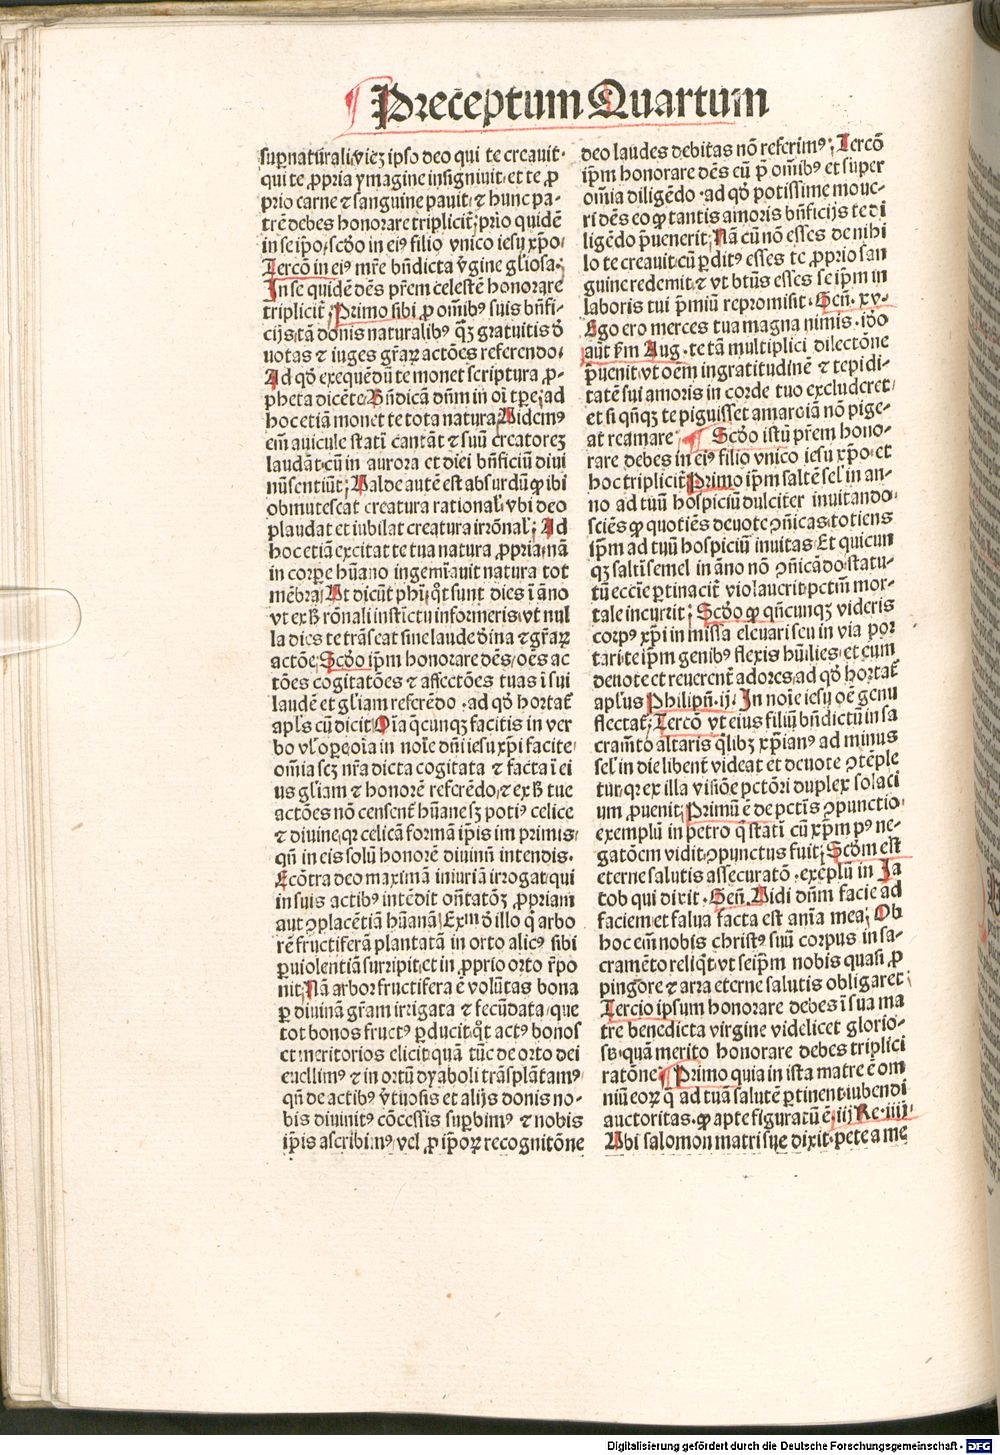 Preceptum Quartum
suꝑnaturali / vicꝫ ipso deo qui te creauit·
qui te ꝓpria ymagine insigniuit· et te ꝓ
prio carne ⁊ sanguine pauit· ⁊ hunc pa-
trē debes honorare triplicit̄; prīo quidē
in se ip̄o / scḋo in eiꝰ filio vnico iesu xp̄o /
Tercō in eiꝰ mr̄e bn̄dicta v̄gine gl̄iosa·;
In se quidē dēs pr̄em celestē honorare
triplicit̄; Primo sibi ꝓ om̄ibꝰ suis bn̄fi-
cijs / tā donis naturalibꝰ qꝫ gratuitis d̄
uotas ⁊ iuges gr̄aꝝ actōes referendo /
Ad qḋ exequēdū te monet scriptura ꝓ-
pheta dicēte / Bn̄dicā dn̄m in oī tp̄e; ad
hoc etiā monet te tota natura Uidemꝰ
em̄ auicule statī cantāt ⁊ suū creatoreꝫ
laudāt / cū in aurora et diei bn̄ficiū diui
nū sentiūt; Ualde autē est absurdū ꝙ ibi
obmutescat creatura rational̄ vbi deo
plaudat et iubilat creatura irrōnal̄; Ad
hoc etiā excitat te tua natura ꝓpria· nā
in corꝑe hūano ingemīauit natura tot
mēbra / Ut dicūt phī· qt̄ sunt dies ī āno
vt exB rōnali instīctu informeris / vt nul
la dies te trāseat sine laude d̄ina ⁊ gr̄aꝝ
actōe; Scḋo ip̄m honorare dēs / oēs ac
tōes cogitatōes ⁊ affectōes tuas ī sui
laudē et gl̄iam referēdo · ad qḋ hortat̄
apl̄s cū dicit / Oīa q̄cunqꝫ facitis in ver
bo vl̓ oꝑe / oīa in noīe dn̄i iesu xp̄i facite /
om̄ia scꝫ nr̄a dicta cogitata ⁊ facta ī ei
us gl̄iam ⁊ honorē referēdo / ⁊ exB tue
actōes nō censent̄ hūane sꝫ potiꝰ celice
⁊ diuine / qꝛ celicā formā ip̄is im primis /
qn̄ in eis solū honorē diuinū intendis·
Ecōtra deo maximā iniuriā irrogat / qui
in suis actibꝰ intēdit on̄tatōꝫ ꝓpriam
aut ꝯplacētiā hūanā / Exm̄ d̄ illo q̄ arbo
rē fructiferā plantatā in orto alicꝰ sibi
ꝑ uiolentiā surripit / et in ꝓprio orto r̄po
nit / Nā arbor fructifera ē volūtas bona
ꝑ diuinā gr̄am irrigata ⁊ fecūdata / que
tot bonos fructꝰ ꝑducit / qt̄ actꝰ bonos
et meritorios elicit / quā tūc de orto dei
euellimꝰ ⁊ in ortū dyaboli trāsplātamꝰ
qn̄ de actibꝰ v̄tuosis et alijs donis no-
bis diuinitꝰ cōcessis suꝑbimꝰ ⁊ nobis
ip̄is ascribimꝰ / vel ꝓ ip̄oꝝ recognitōne
deo laudes debitas nō referimꝰ; Tercō
ip̄m honorare dēs eū p̄ om̄ibꝰ et super
om̄ia diligēdo · ad qḋ potissime moue-
ri dēs eo ꝙ tantis amoris bn̄ficijs te di
ligēdo p̄uenerit; Nā cū nō esses de nihi
lo te creauit / cū ꝑditꝰ esses te ꝓprio san
guine redemit / ⁊ vt btūs esses se ip̄m in
laboris tui p̄miū repromisit · Gen̄· xv·
Ego ero merces tua magna nimis · iḋo
aut̄ fm̄ Aug· te tā multiplici dilectōne
p̄uenit / vt oēm ingratitudinē ⁊ tepidi-
tatē sui amoris in corde tuo excluderet /
et si qn̄qꝫ te piguisset amare / iā nō pige-
at reamare Scḋo istū pr̄em hono-
rare debes in eiꝰ filio vnico iesu xp̄o / et
hoc triplicit̄; Primo ip̄m saltē sel̓ in an-
no ad tuū hospiciū dulciter inuitando /
sciēs ꝙ quotiēs deuote ꝯn̄icas / totiens
ip̄m ad tuū hospiciū inuitas / Et quicun
qꝫ saltī semel in āno nō ꝯn̄icādo / statu-
tū eccl̄ie ꝑtinacit̄ violauerit / pctm̄ mor-
tale incurrit; Scḋo ꝙ qn̄cunqꝫ videris
corpꝰ xp̄i in missa eleuari seu in via por
tari / te ip̄m genibꝰ flexis hūilies / et eum
deuote et reuerent̄ adores / ad qḋ hortat̄
apl̓us Philipn̄·ij· In noīe iesu oē genu
flectat̄; Tercō vt eius filiū bn̄dictū in sa
cram̄to altaris q̄libꝫ xp̄ianꝰ ad minus
sel̓ in die libent̄ videat et deuote ꝯtēple
tur / qꝛ ex illa visiōe pctōri duplex solaci
um ꝓuenit; Primū ē de pctīs ꝯpunctio·
exemplū in petro q̄ statī cū xp̄m pꝰ ne-
gatōem vidit / ꝯpunctus fuit; Scḋm est
eterne salutis assecuratō · exēplū in Ja
cob qui dixit · Gen̄· Uidi dn̄m facie ad
faciem et salua facta est anīa mea; Ob
hoc em̄ nobis christꝰ suū corpus in sa-
cramēto reliq̄t / vt seip̄m nobis quasi ꝓ
pingore ⁊ arra eterne salutis obligaret;
Tercio ipsum honorare debes ī sua ma
tre benedicta virgine videlicet glorio-
sa· quā merito honorare debes triplici
ratōne Primo quia in ista matre ē om
niū eoꝝ q̄ ad tuā salutē ꝑtinent / iubendi
auctoritas· ꝙ apte figuratū ē·iij Re·iiij·
Ubi salomon matri sue dixit· pete a me
Digitalisierung gefördert durch die Deutsche Forschungsgemeinschaft - DFG